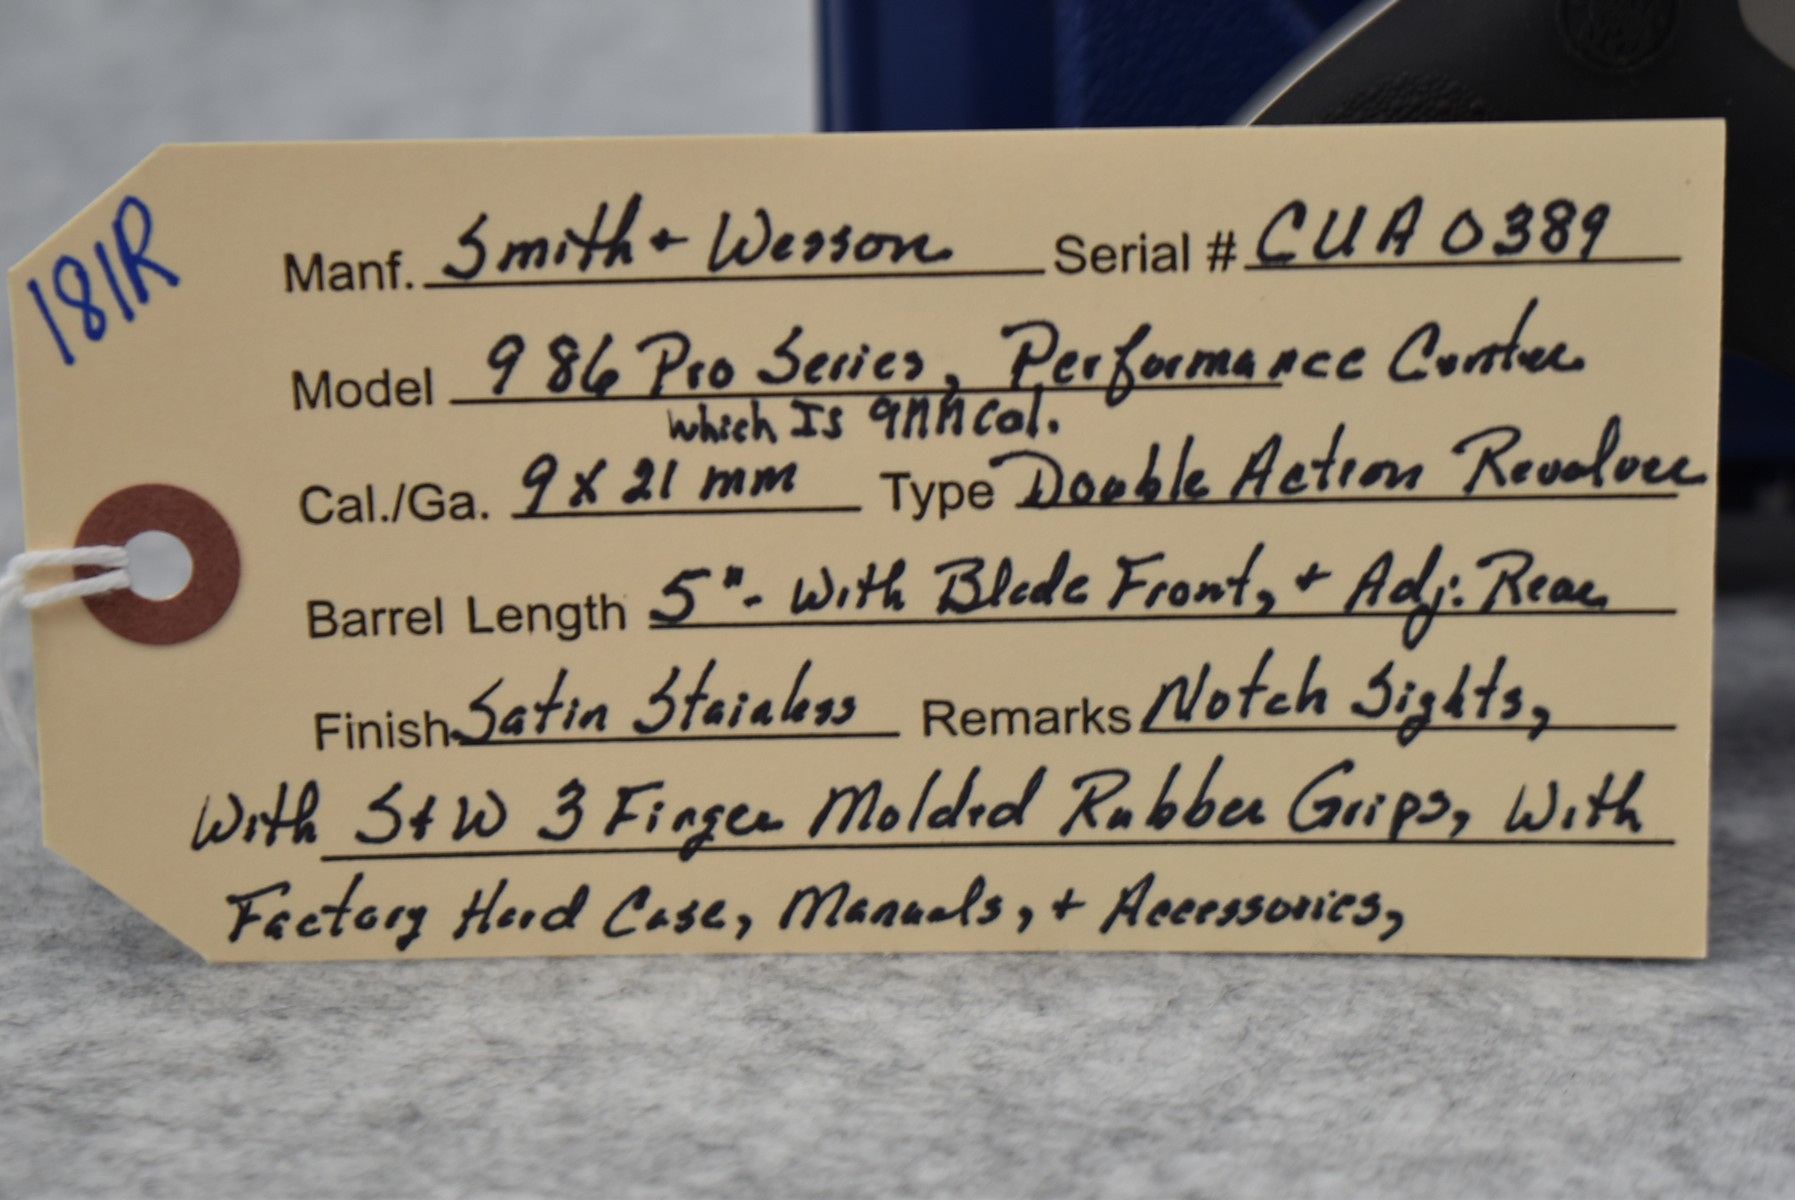 181R
Manf. Smith + Wesson Serial # CUA 0389
Model 986 Pro Series, Performance Center
which Is 9MM Cal.
Cal./Ga. 9 x 21 mm Type Double Action Revolver
Barrel Length 5"- With Blade Front, + Adj: Rear
Finish Satin Stainless Remarks Notch Sights,
With S+W 3 Finger Molded Rubber Grips, With
Factory Hard Case, Manuals, + Accessories,